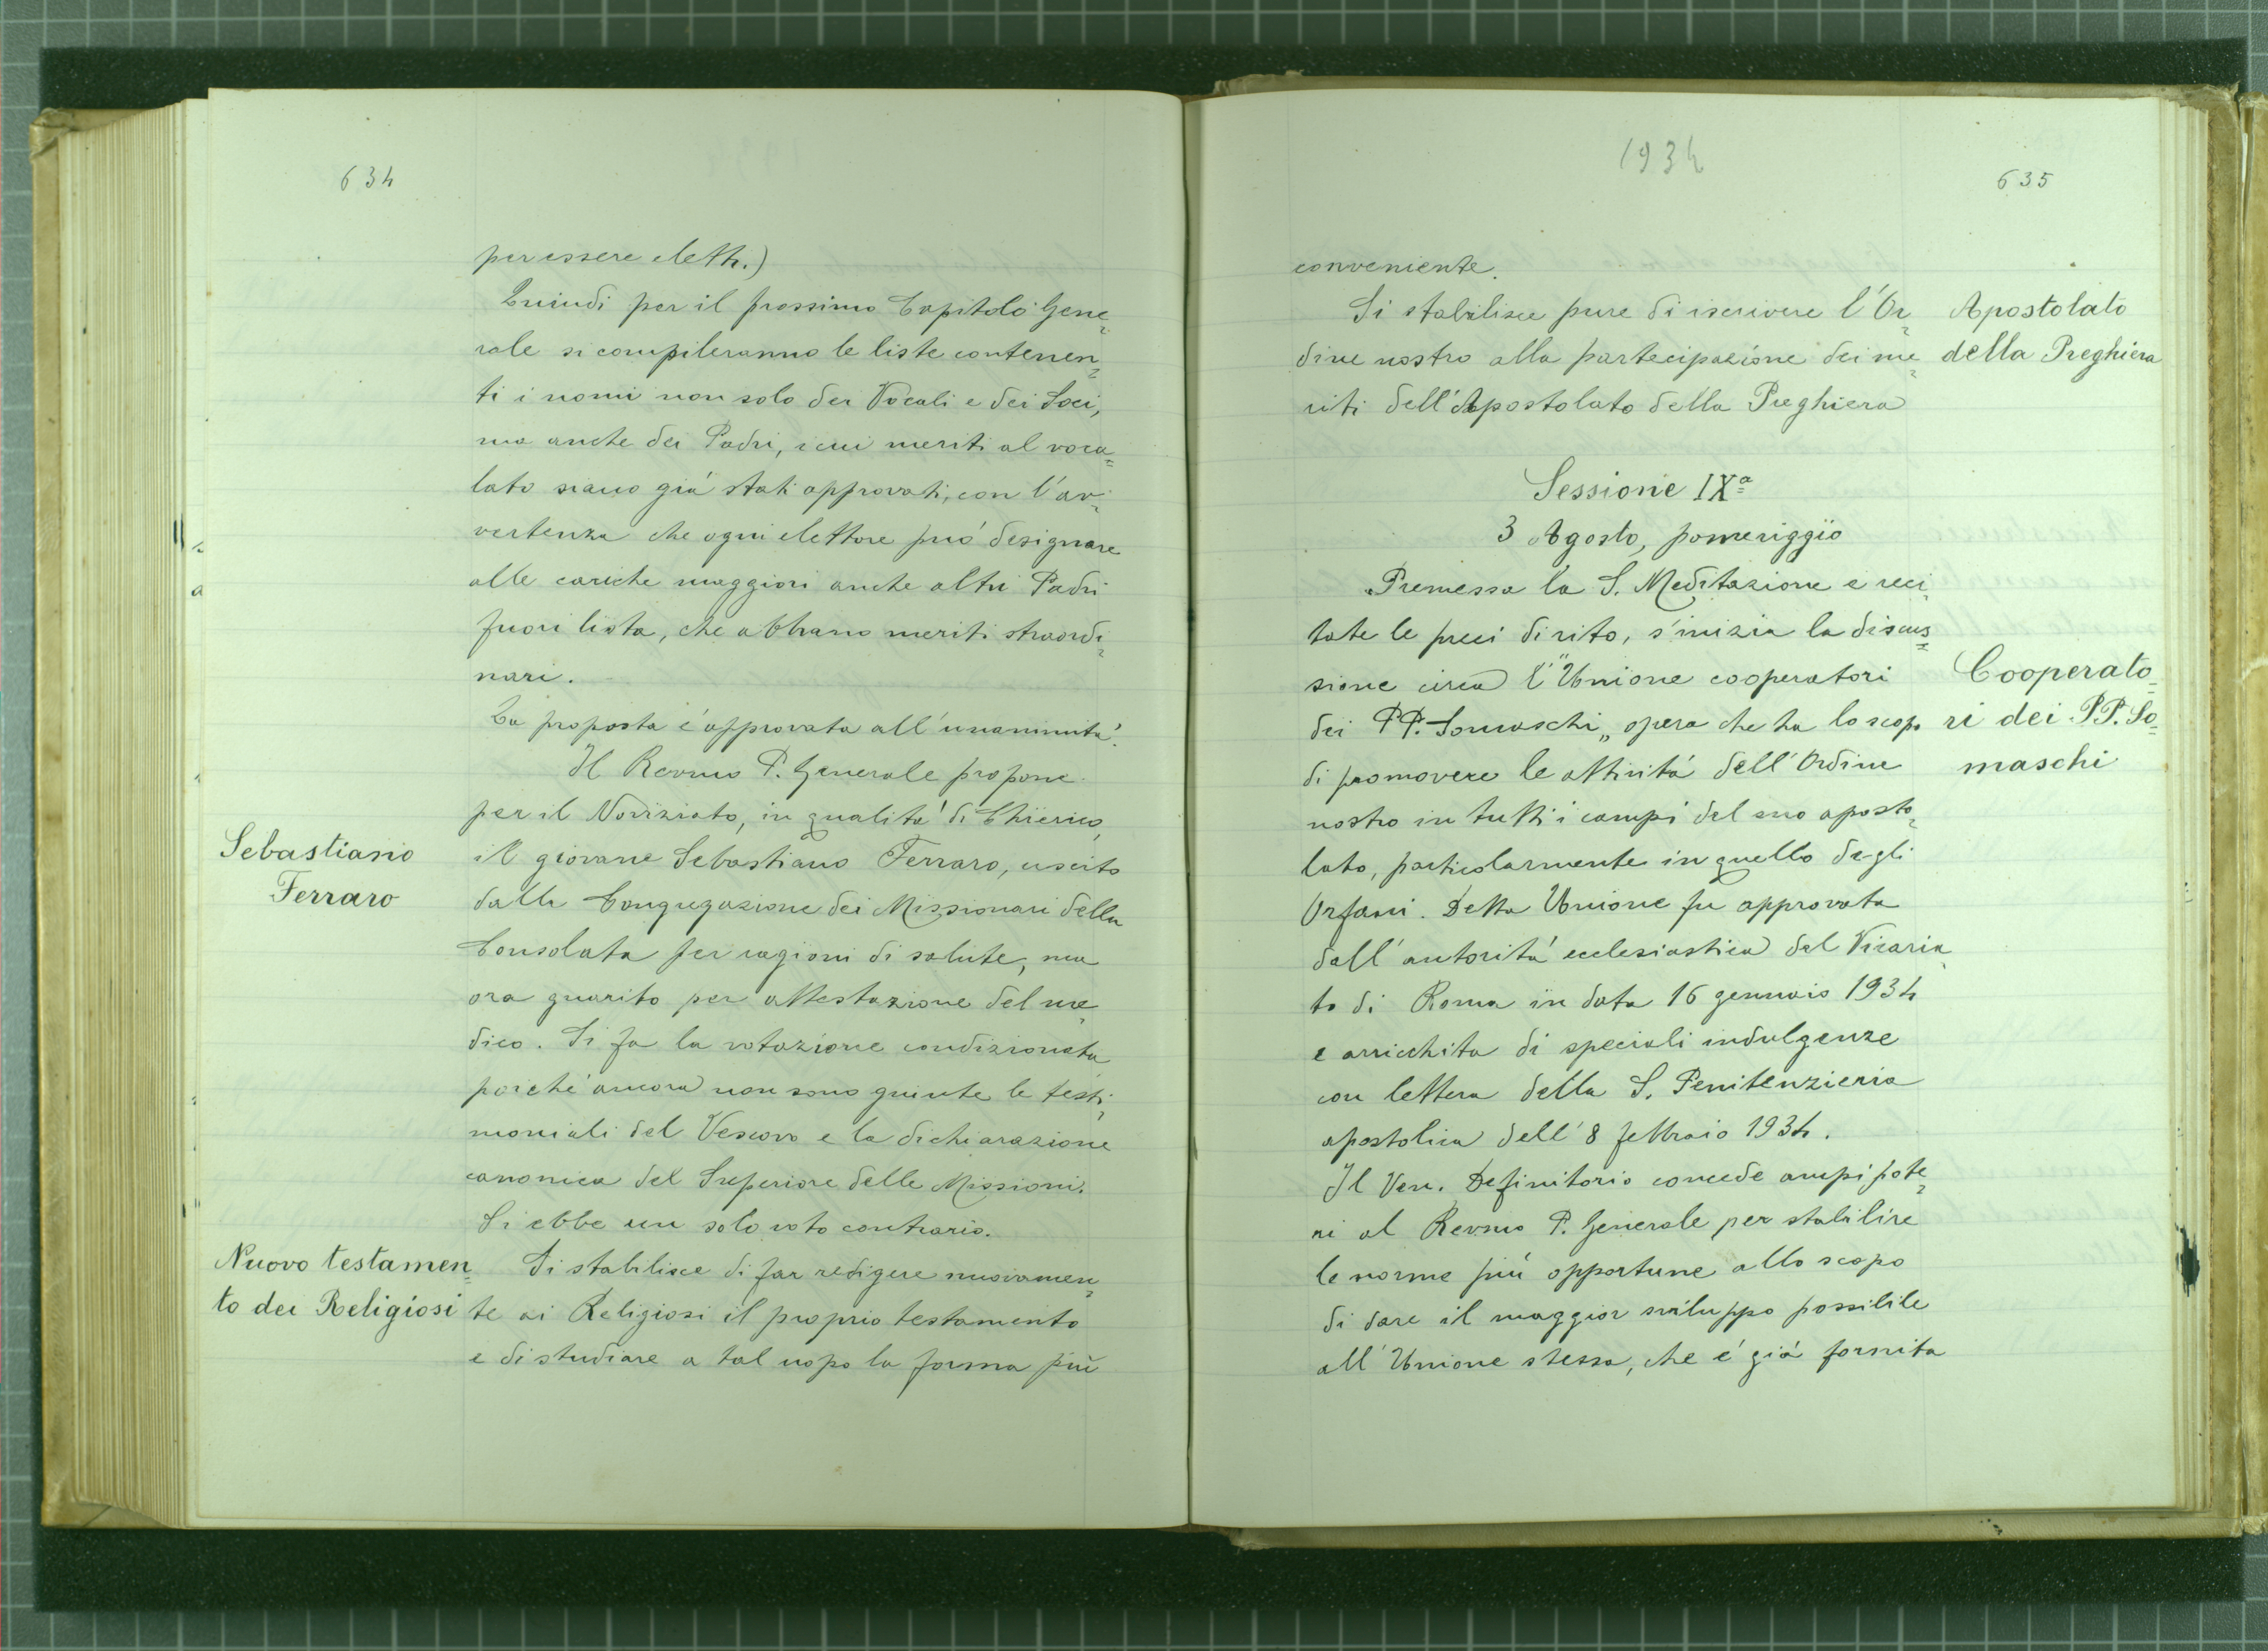 634
per essere eletti.)
Quindi per il prossimo Capitolo Gene=
rale si compileranno le liste contenen=
ti i nomi non solo dei Vocali e dei Soci,
ma anche dei Padri, i cui meriti al voca=
lato siano giá stati approvati, con l'av=
vertenza che ogni elettore puó designare
alle cariche maggiori anche altri Padri
fuori lista, che abbiano meriti straordi=
nari.
La proposta é approvata all'unanimitá.
Il Revmo P. Generale propone
per il Noviziato, in qualitá di Chierico,
Sebastiano
il giovane Sebastiano Ferraro, uscito
Ferraro
dalla Congregazione dei Missionari della
Consolata per ragioni di salute, ma
ora guarito per attestazione del me=
dico. Si fa la votazione condizionata
poiché ancora non sono giunte le testi=
moniali del Vescovo e la dichiarazione
canonica del Superiore delle Missioni.
Si ebbe un solo voto contrario.
Nuovo testamen=
Si stabilisce di far redigere nuovamen=
to dei Religiosi
te ai Religiosi il proprio testamento
e di studiare a tal uopo la forma piú
1934
635
conveniente.
Si stabilisce pure di iscrivere l'Or=
Apostolato
dine nostro alla partecipazione dei me=
della Preghiera
riti dell'Apostolato della Preghiera
Sessione IXª
3 Agosto, pomeriggio
Premessa la S. Meditazione e reci=
tate le preci di rito, s'inizia la discus=
sione circa l'"Unione cooperatori
Cooperato=
dei PP. Somaschi„ opera che ha lo scopo
ri dei PP. So=
di promovere le attivitá dell'Ordine
maschi
nostro in tutti i campi del suo aposto=
lato, particolarmente in quello degli
Orfani. Detta Unione fu approvata
dall'autoritá ecclesiastica del Vicaria=
to di Roma in data 16 gennaio 1934
e arricchita di speciali indulgenze
con lettera della S. Penitenzieria
apostolica dell'8 febbraio 1934.
Il Ven. Definitorio concede ampi pote=
ri al Revmo P. Generale per stabilire
le norme piú opportune allo scopo
di dare il maggior sviluppo possibile
all'Unione stessa, che é giá fornita